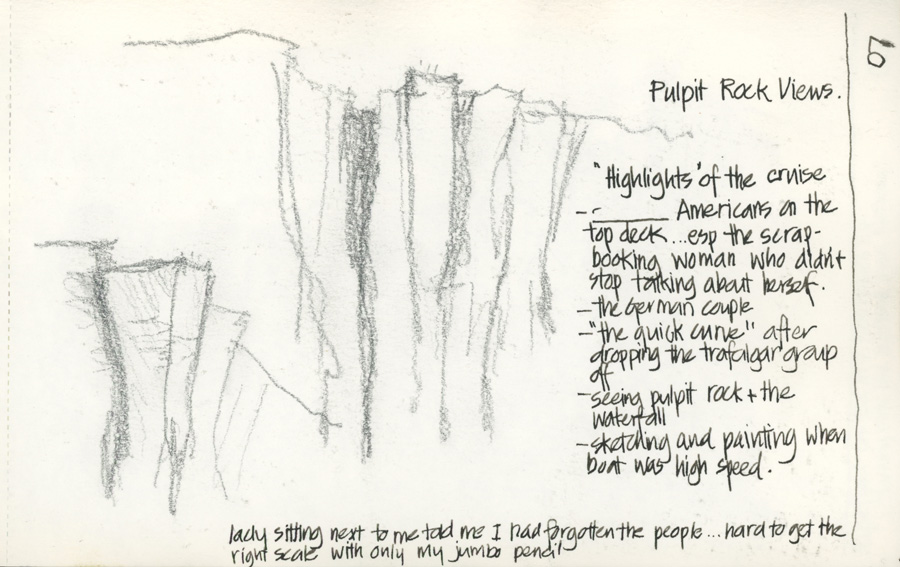 Pulpit Rock Views.
"Highlights" of the cruise
- ________ Americans on the
top deck...esp the scrap-
booking woman who didn't
stop talking about herself.
- the German couple
- "the quick curve" after
dropping the trafalgar group
off
- seeing pulpit rock + the
waterfall
- sketching and painting when
boat was high speed.
lady sitting next to me told me I had forgotten the people...hard to get the
right scale with only my jumbo pencil